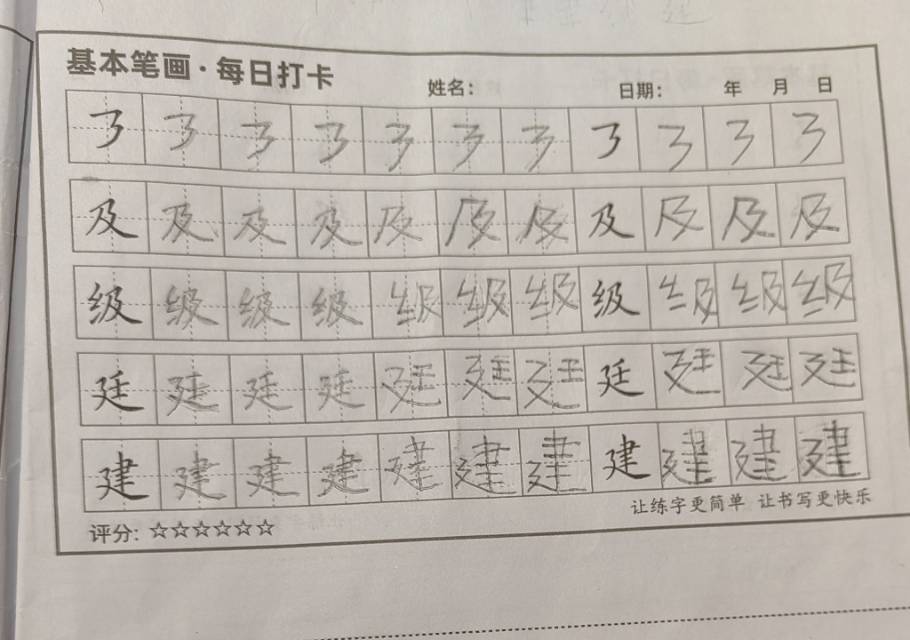 基本笔画·每日打卡
姓名： 日期： 年 月 日
㇋ ㇋ ㇋ ㇋ ㇋ ㇋ ㇋ ㇋ ㇋ ㇋ ㇋
及 及 及 及 及 及 及 及 及 及 及
级 级 级 级 级 级 级 级 级 级 级
廷 廷 廷 廷 廷 廷 廷 廷 廷 廷 廷
建 建 建 建 建 建 建 建 建 建 建
让练字更简单 让书写更快乐
评分: ☆☆☆☆☆☆